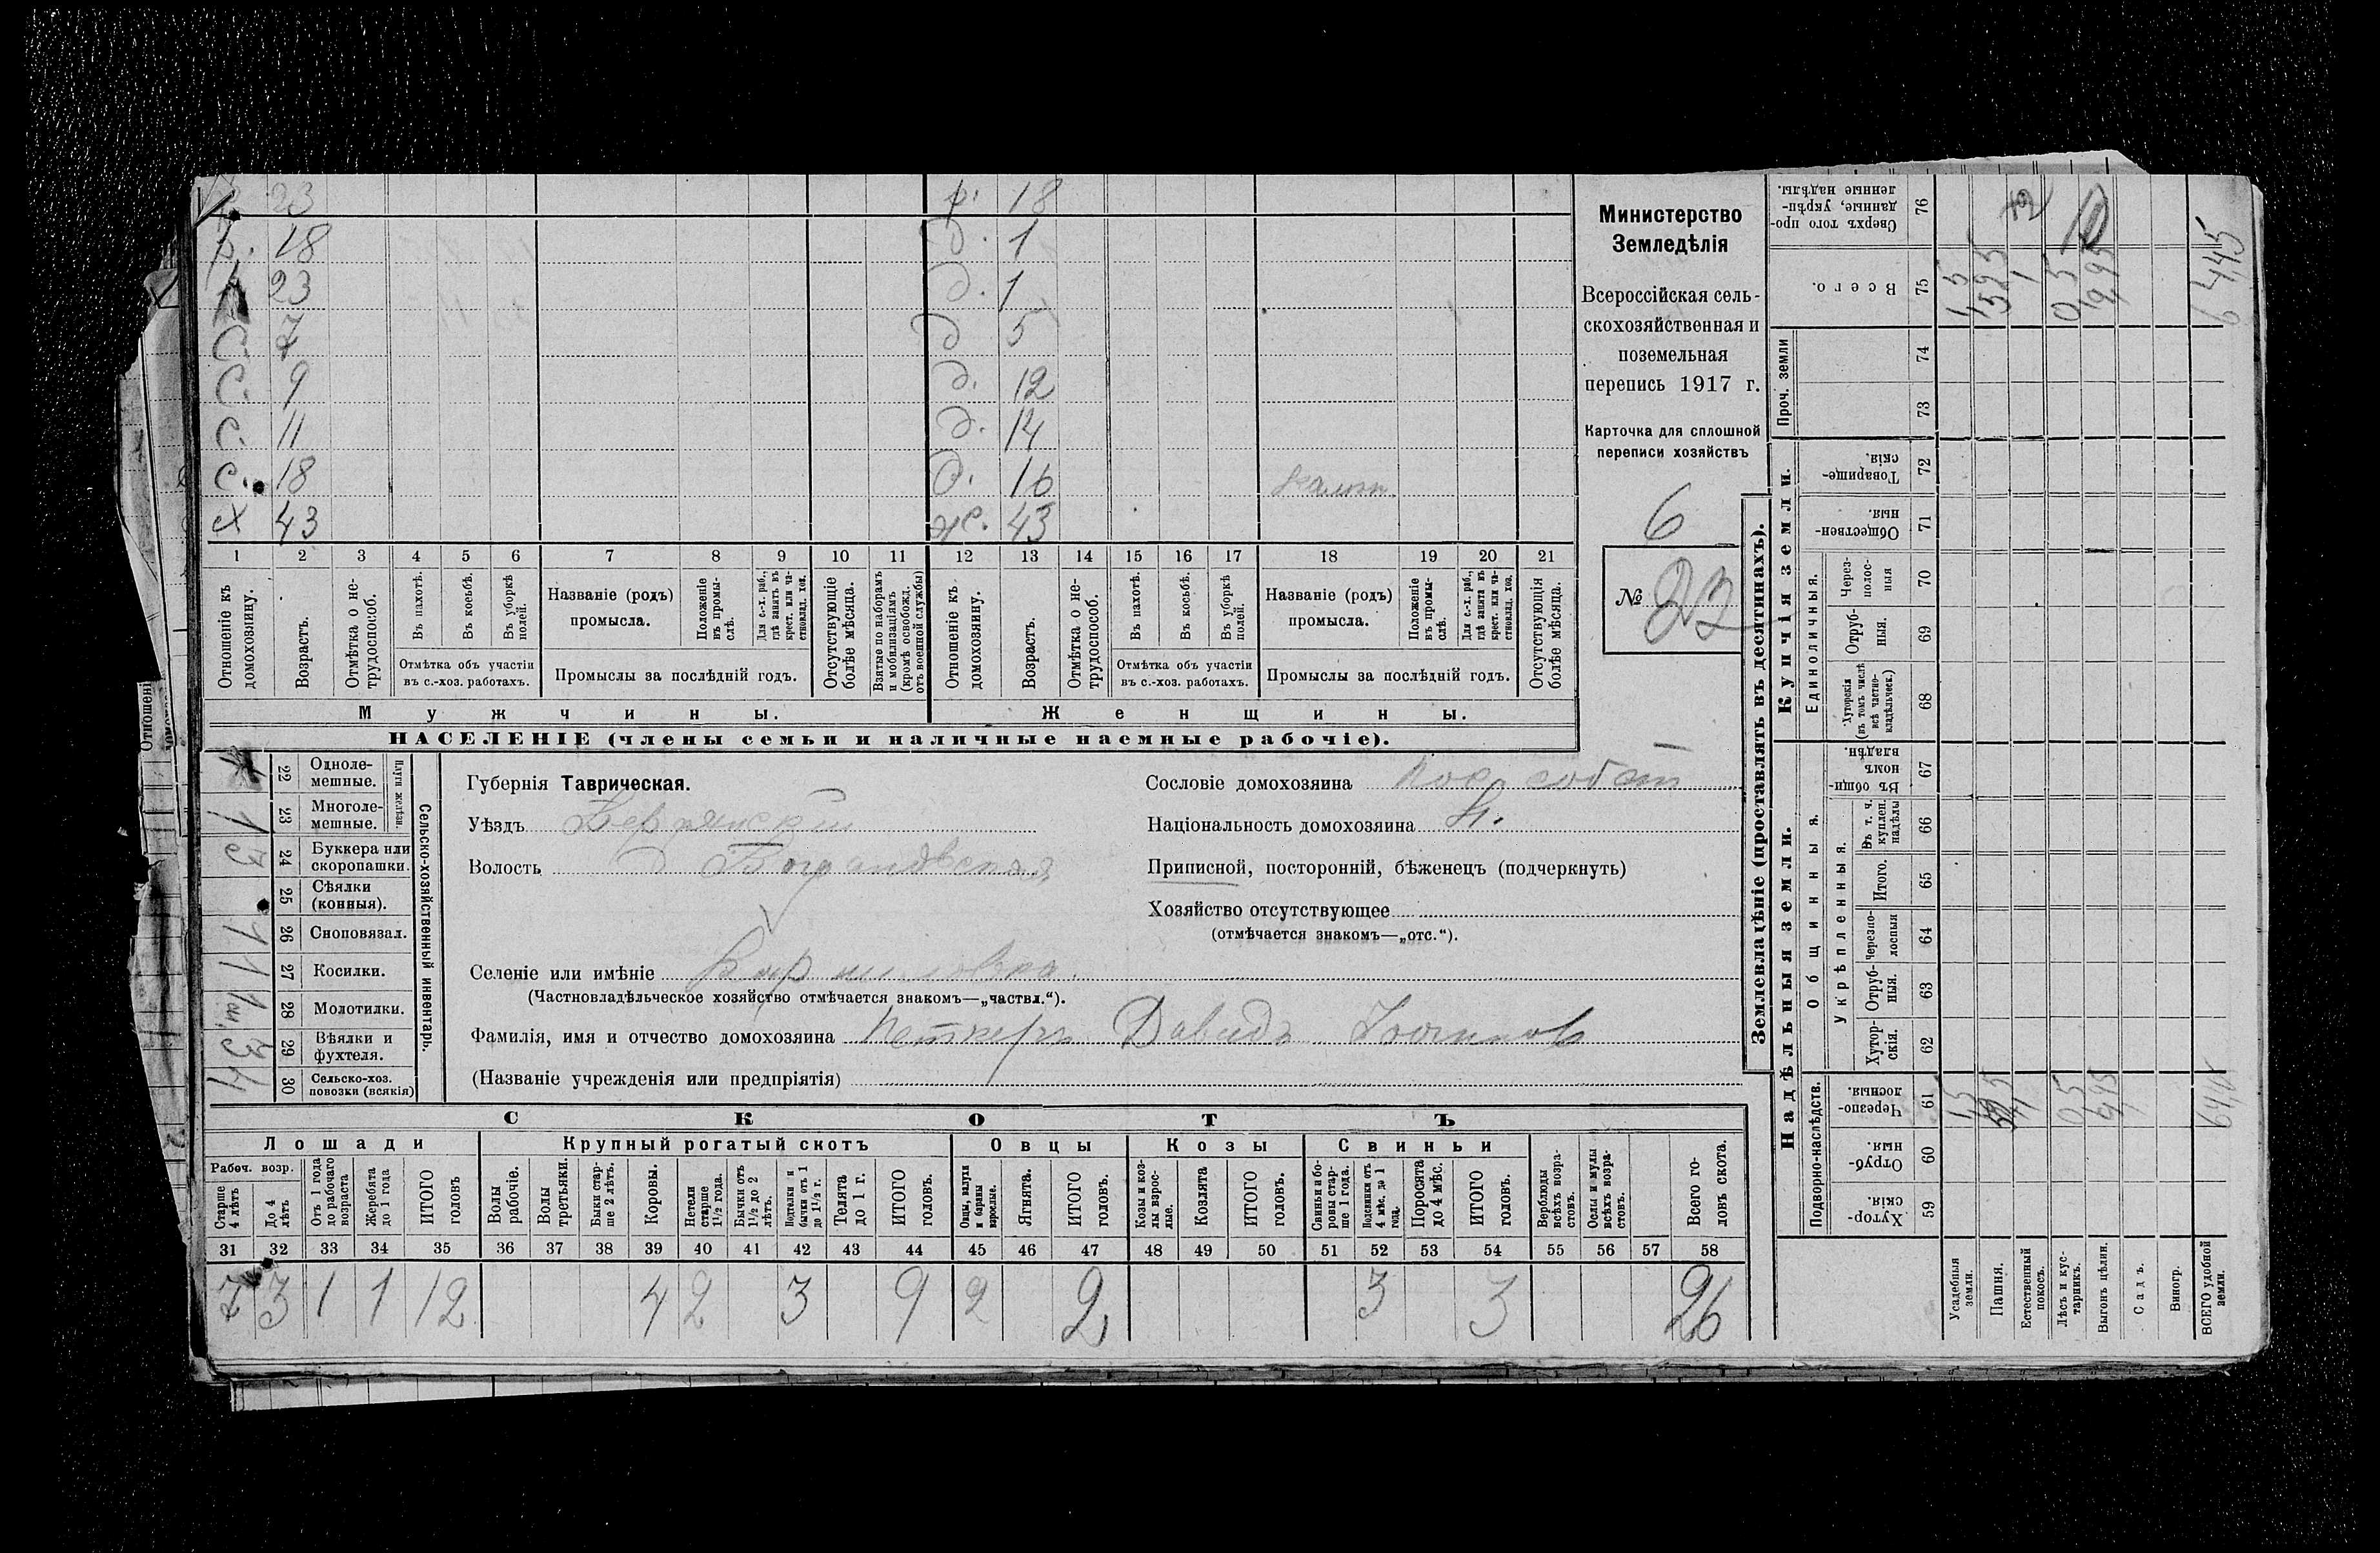 23 р. 18
р. 18 д. 1
23 д. 1
С. 7 д 5
С. 9 д. 12
С. 11 д. 14
С. 18 д. 16
х 43 ж. 43
1 2 3 4 5 6 7 8 9 10 11 12 13 14 15 16 17 18 19 20 21
Отношеніе къ домохозяину.
Возрастъ.
Отмѣтка о не-трудоспособ.
Въ пахотѣ.
Въ косьбѣ.
Въ уборкѣ полей.
Отмѣтка объ участіи въ с.-хоз. работахъ.
Названіе (родъ) промысла.
Положеніе въ промы-слѣ.
Для с.-х. раб., гдѣ занятъ въ крест. или ча-стновлад. хоз.
Промыслы за послѣдній годъ.
Отсутствующіе болѣе мѣсяца.
Взятые по наборамъ и мобилизаціямъ (кромѣ освобожд. отъ военной службы)
Отношеніе къ домохозяину.
Возрастъ.
Отмѣтка о не-трудоспособ.
Въ пахотѣ.
Въ косьбѣ.
Въ уборкѣ полей.
Отмѣтка объ участіи въ с.-хоз. работахъ.
Названіе (родъ) промысла.
Положеніе въ промы-слѣ.
Для с.-х. раб., гдѣ занята въ крест. или ча-стновлад. хоз.
Промыслы за послѣдній годъ.
Отсутствующія болѣе мѣсяца.
Мужчины.
Женщины.
НАСЕЛЕНІЕ (члены семьи и наличные наемные рабочіе).
Министерство
Земледѣлія
Всероссійская сель-
скохозяйственная и
поземельная
перепись 1917 г.
Карточка для сплошной
переписи хозяйствъ
6
№ 23
22 Одноле-мешные.
23 Многоле-мешные. 1
Плуги желѣзн.
24 Буккера или скоропашки.
25 Сѣялки (конныя).
26 Сноповязал. 1
27 Косилки. 1
28 Молотилки.
29 Вѣялки и фухтеля.
30 Сельско-хоз. повозки (всякія) 4
Сельско-хозяйственный инвентарь.
Губернія Таврическая.
Уѣздъ Бердянскій
Волость Богдановская
Селеніе или имѣніе
(Частновладѣльческое хозяйство отмѣчается знакомъ—„частвл.“).
Фамилія, имя и отчество домохозяина Петкеръ Давидъ
(Названіе учрежденія или предпріятія)
Сословіе домохозяина пос. собст
Національность домохозяина Н.
Приписной, посторонній, бѣженецъ (подчеркнуть)
Хозяйство отсутствующее
(отмѣчается знакомъ—„отс.“).
СКОТЪ
Лошади Крупный рогатый скотъ Овцы Козы Свиньи
Рабоч. возр.
Старше 4 лѣтъ
До 4 лѣтъ
Отъ 1 года до рабочаго возраста
Жеребята до 1 года
ИТОГО головъ
Волы рабочіе.
Волы третьяки.
Быки стар-ше 2 лѣтъ.
Коровы.
Нетели старше 1½ года.
Бычки отъ 1½ до 2 лѣтъ.
Подтелки и бычки отъ 1 до 1½ г.
Телята до 1 г.
ИТОГО головъ.
Овцы, валухи и бараны взрослые.
Ягнята.
ИТОГО головъ.
Козы и коз-лы взрос-лые.
Козлята
ИТОГО головъ.
Свиньи и бо-ровы стар-ше 1 года.
Подсвинки отъ 4 мѣс. до 1 года.
Поросята до 4 мѣс.
ИТОГО головъ.
Верблюды всѣхъ возра-стовъ.
Ослы и мулы всѣхъ возра-стовъ.
Всего го-ловъ скота.
31 32 33 34 35 36 37 38 39 40 41 42 43 44 45 46 47 48 49 50 51 52 53 54 55 56 57 58
7 3 1 1 12 4 2 3 9 2 2 3 3 26
Землевладѣніе (проставлять въ десятинахъ).
Надѣльныя земли. Купчія земли.
Подворно-наслѣдств. Общинныя. Единоличныя. Проч. земли
Укрѣпленныя.
59 Хутор-скія.
60 Отруб-ныя.
61 Черезпо-лосныя.
62 Хутор-скія.
63 Отруб-ныя.
64 Черезпо-лосныя
65 Итого.
66 Въ т. ч. куплен. надѣлы
67 Въ общи-номъ владѣн.
68 Хуторскія (въ томъ числѣ всѣ частно-владѣльческ.)
69 Отруб-ныя.
70 Через-полос-ныя
71 Обществен-ныя.
72 Товарище-скія.
73
74
75 Всего.
76 Сверхъ того про-данные, укрѣп-ленные надѣлы.
Усадебныя земли. 1,5
Пашня.
Естественный покосъ.
Лѣсъ и кус-тарникъ. 0,5
Выгонъ цѣлин. 9,95
Садъ.
Виногр.
ВСЕГО удобной земли. 64,45